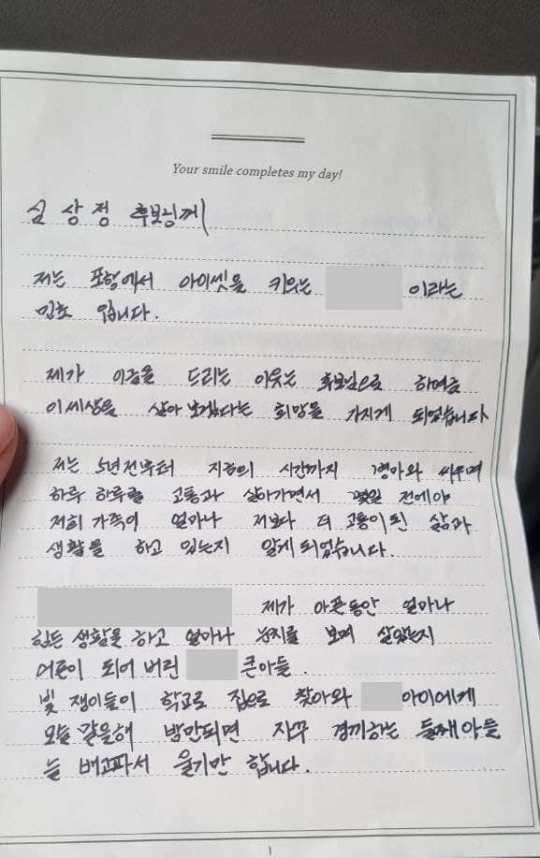 Your smile completes my day!
심 상 정 후보님께
저는 포항에서 아이셋을 키우는 이라는
입니다.
제가 이글을 드리는 이유는 후보님으로 하여금
이 세상을 살아 보겠다는 희망을 가지게 되었습니다
저는 5년전부터 지금의 시간까지 병마와 싸우며
하루 하루를 고통과 살아가면서 몇일 전에야
저희 가족이 얼마나 저보다 더 고통이 된 삶과
생활을 하고 있는지 알게 되었습니다.
제가 아픈동안 얼마나
힘든 생활을 하고 얼마나 눈치를 보며 살았는지
어른이 되어 버린 큰아들.
빚 쟁이들이 학교로 집으로 찾아와 아이에게
모든 말을해 밤만되면 자꾸 경끼하는 둘째아들
늘 배고파서 울기만 합니다.
1